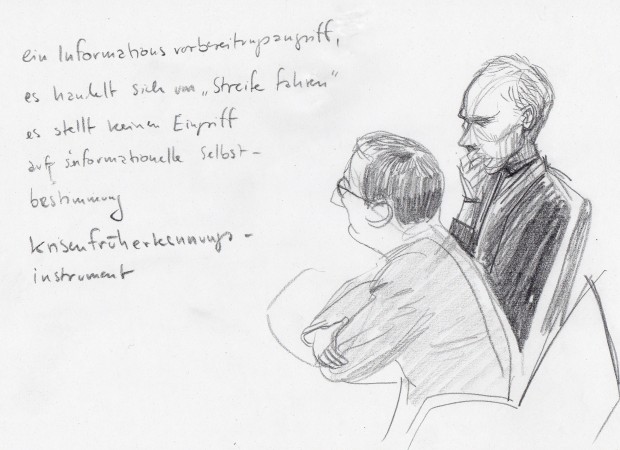 ein Informationsvorbereitungsangriff,
es handelt sich um „Streife fahren"
es stellt keinen Eingriff
auf informationelle Selbst-
bestimmung
Krisenfrüherkennungs-
instrument